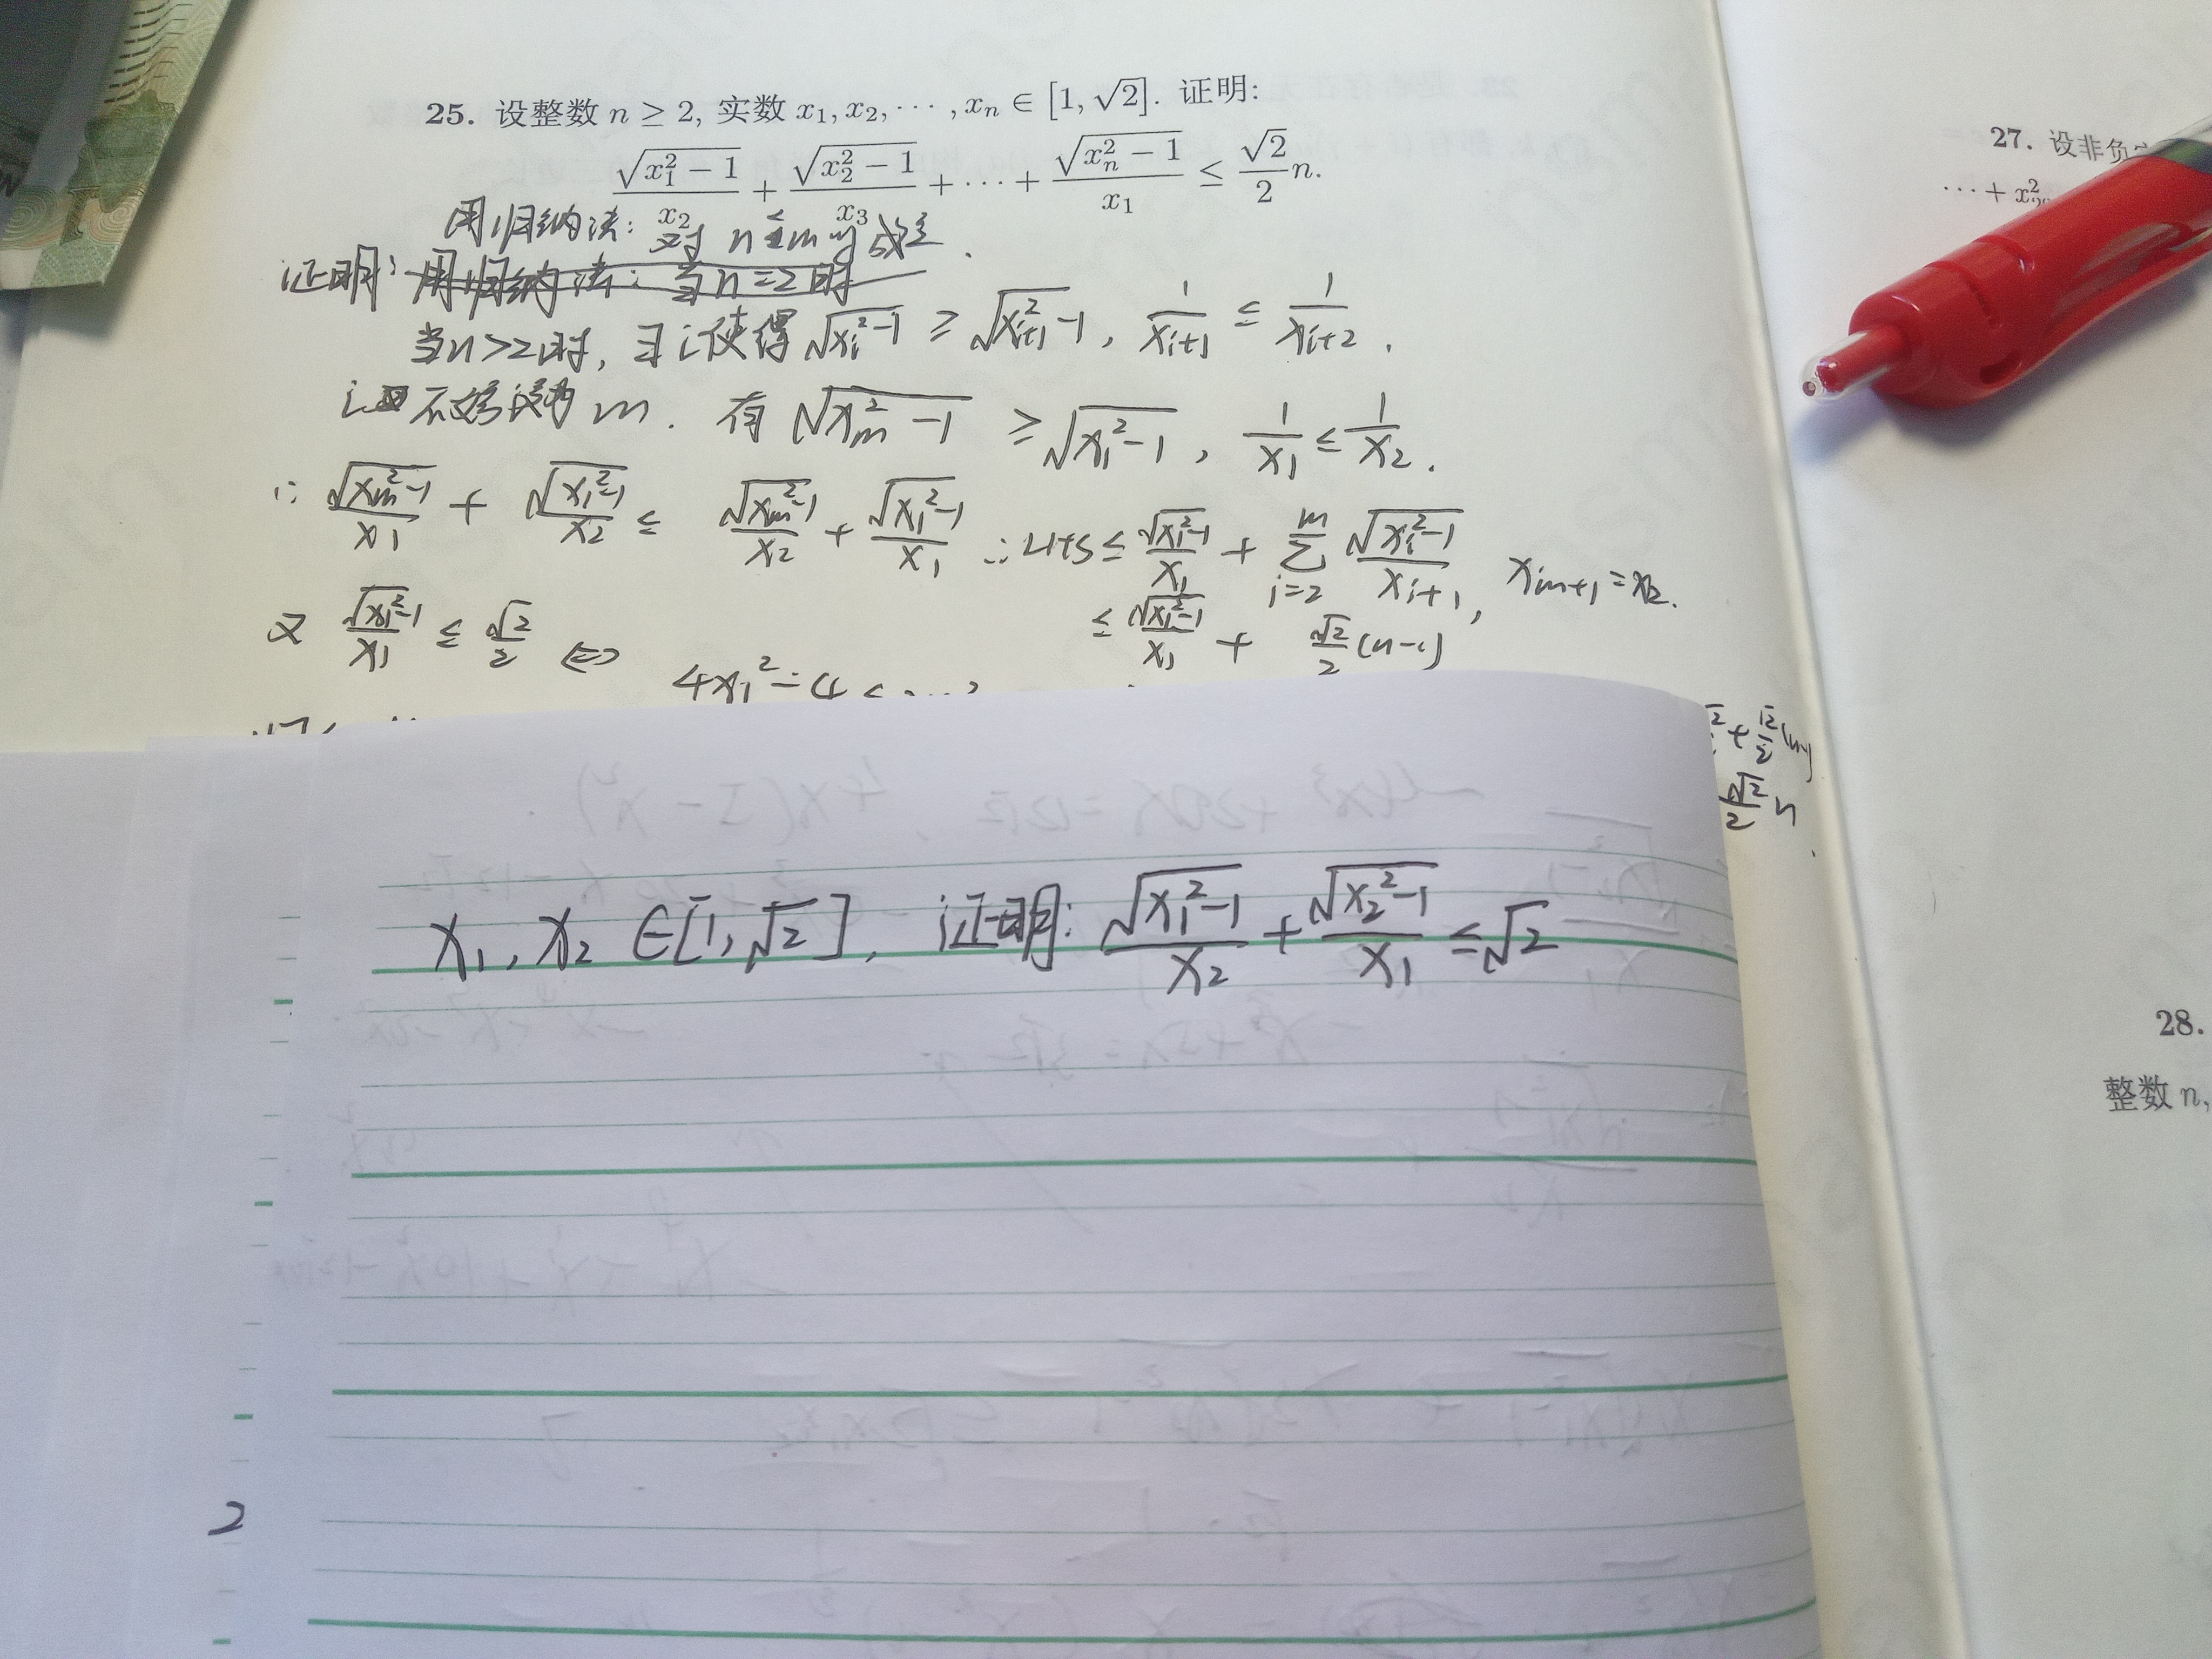 25. 设整数 n ≥ 2, 实数 x₁, x₂, ⋯ , xₙ ∈ [1, √2]. 证明:
√(x₁² − 1)/x₂ + √(x₂² − 1)/x₃ + ⋯ + √(xₙ² − 1)/x₁ ≤ √2/2 n.
用归纳法: 对 n ≤ m 时成立.
证明: 用归纳法: 当 n = 2 时
当 n > 2 时, ∃ i 使得 √(xᵢ² − 1) ≥ √(xᵢ₊₁² − 1), 1/xᵢ₊₁ ≤ 1/xᵢ₊₂.
不妨设为 m. 有 √(xₘ² − 1) ≥ √(x₁² − 1), 1/x₁ ≤ 1/x₂.
∴ √(xₘ² − 1)/x₁ + √(x₁² − 1)/x₂ ≤ √(xₘ² − 1)/x₂ + √(x₁² − 1)/x₁ ∴ LHS ≤ √(x₁² − 1)/x₁ + ∑ᵢ₌₂ᵐ √(xᵢ² − 1)/xᵢ₊₁, xₘ₊₁ = x₂.
≤ √(x₁² − 1)/x₁ + √2/2 (n−1)
又 √(x₁² − 1)/x₁ ≤ √2/2 ⇔
4x₁² − 4 ≤
+ √2/2 (n−1)
√2/2 n
x₁, x₂ ∈ [1, √2], 证明: √(x₁² − 1)/x₂ + √(x₂² − 1)/x₁ ≤ √2
2
27. 设非负
⋯ + x²
28.
整数 n,